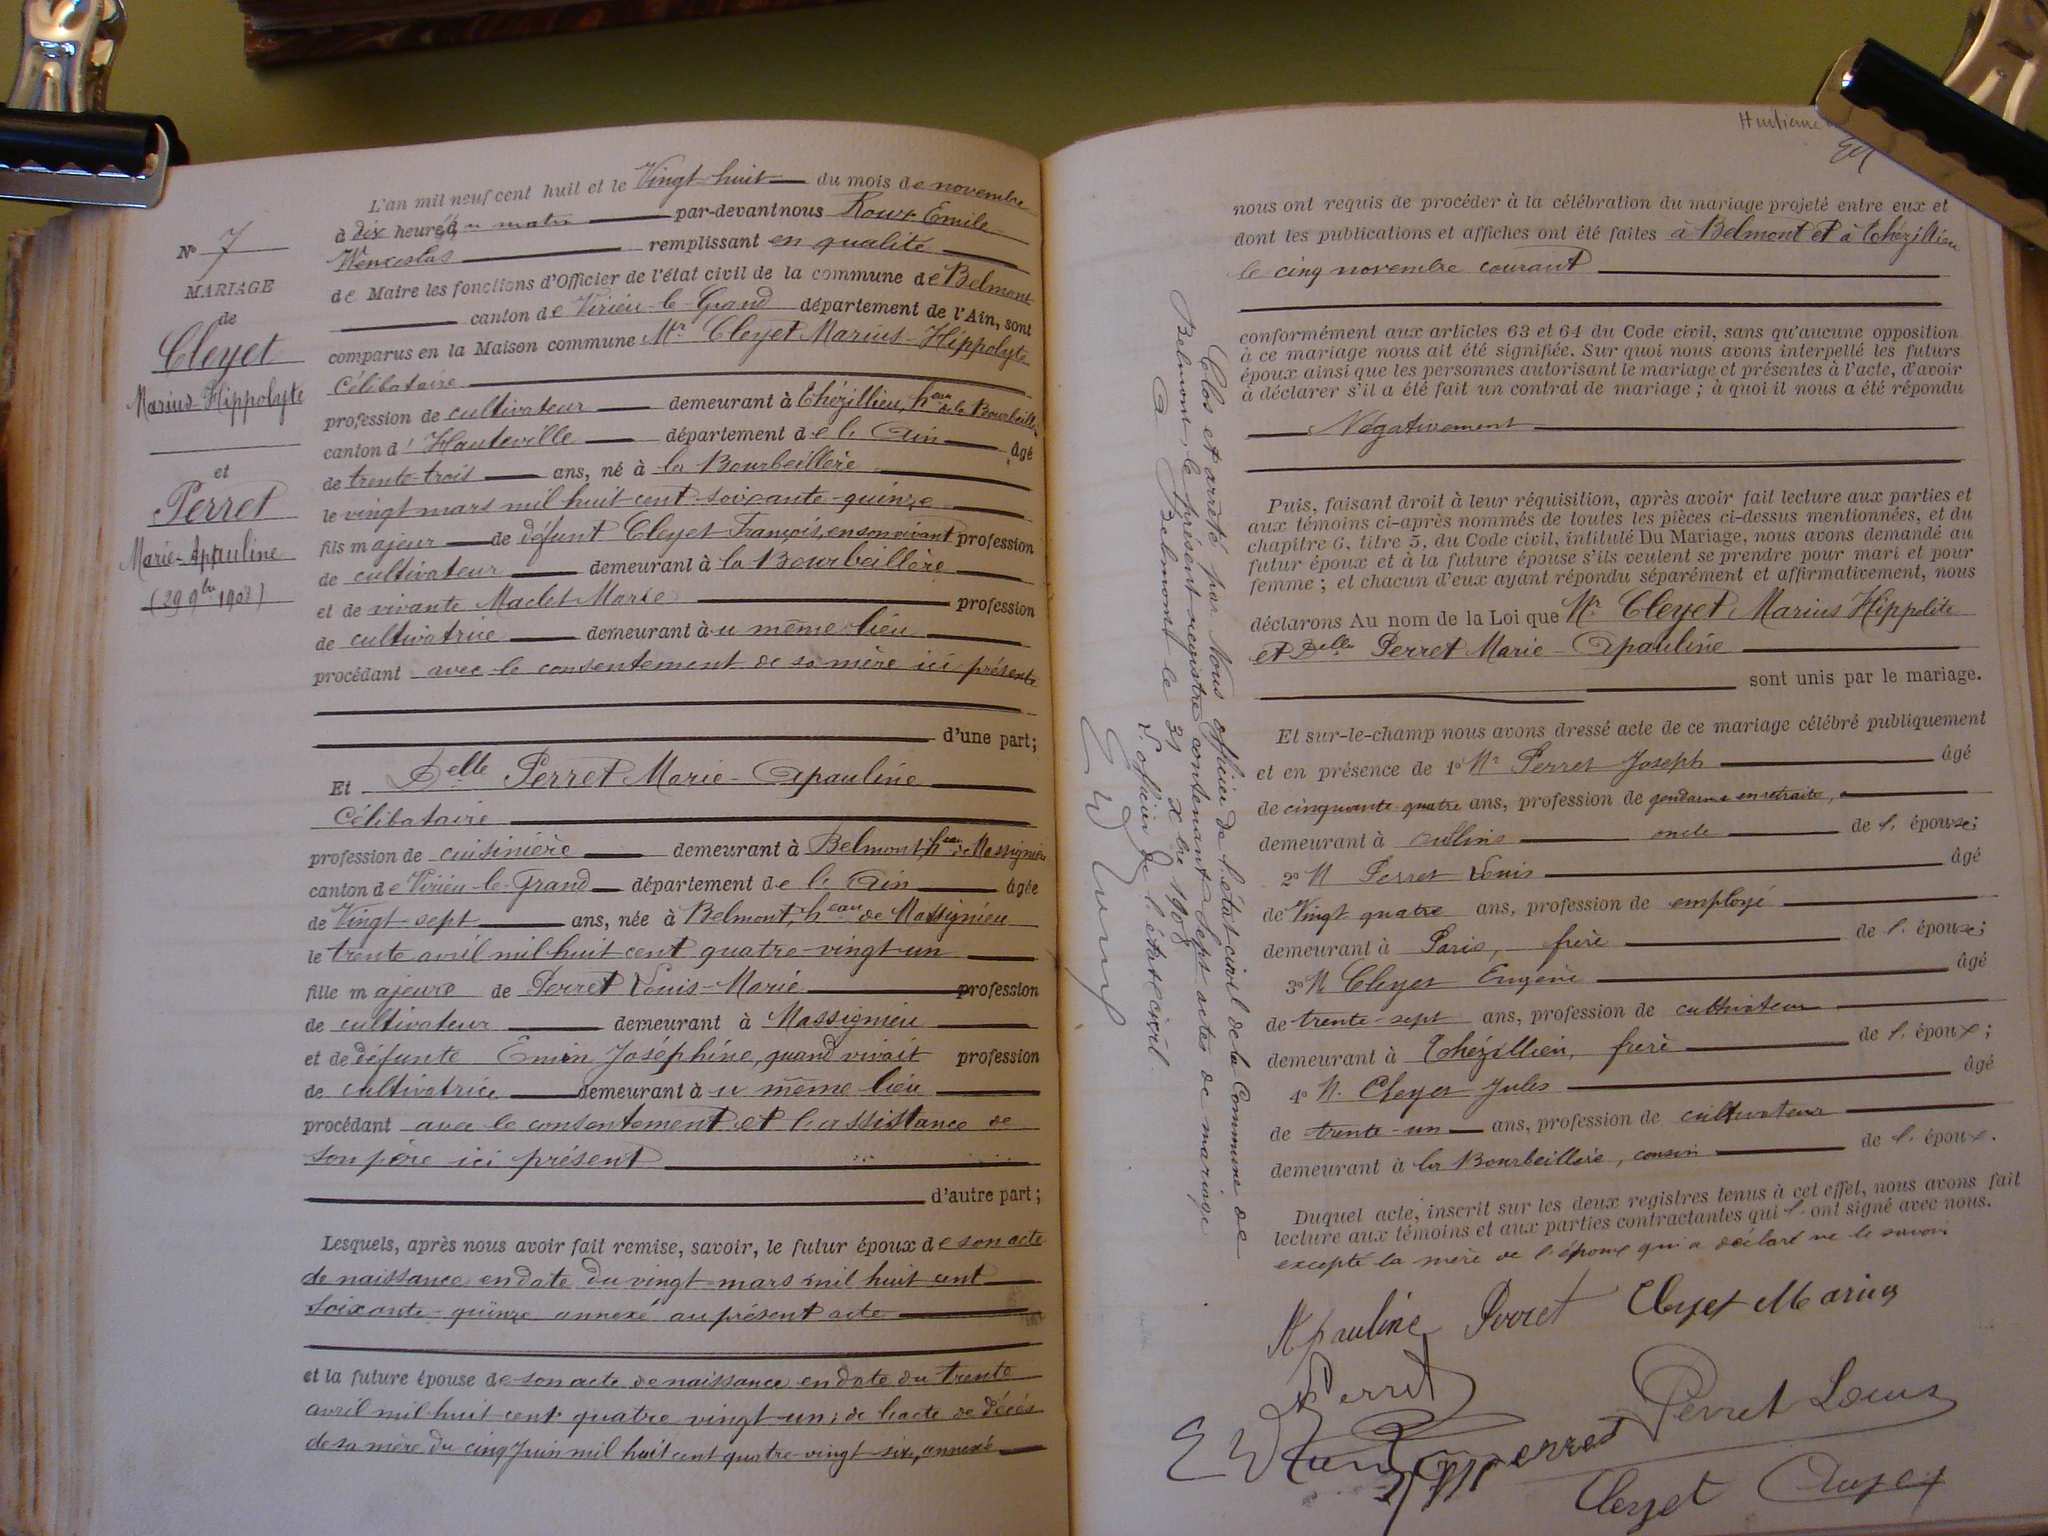 Nº 7
MARIAGE
de
Cleyet
Marius-Hippolyte
et
Perret
Marie-Apauline
(29 9bre 1908)
L'an mil neuf cent huit et le Vingt-huit du mois de novembre
à dix heures du matin par-devant nous Roux Emile
Wenceslas remplissant en qualité
de Maire les fonctions d'Officier de l'état civil de la commune de Belmont
canton de Virieu-le-Grand département de l'Ain, sont
comparus en la Maison commune Mr Cleyet Marius-Hippolyte
Célibataire
profession de cultivateur demeurant à Thézillieu, heau de la Bourbeillère
canton d'Hauteville département de l'Ain âgé
de trente-trois ans, né à la Bourbeillère
le vingt mars mil huit cent soixante-quinze
fils majeur de défunt Cleyet François, en son vivant profession
de cultivateur demeurant à la Bourbeillère
et de vivante Maclet Marie profession
de cultivatrice demeurant au même lieu
procédant avec le consentement de sa mère ici présente
d'une part;
Et Delle Perret Marie-Apauline
Célibataire
profession de cuisinière demeurant à Belmont, heau de Massignieu
canton de Virieu-le-Grand département de l'Ain âgée
de Vingt-sept ans, née à Belmont, heau de Massignieu
le trente avril mil huit cent quatre-vingt-un
fille majeure de Perret Louis-Marie profession
de cultivateur demeurant à Massignieu
et de défunte Emin Joséphine, quand vivait profession
de cultivatrice demeurant au même lieu
procédant avec le consentement et l'assistance de
son père ici présent
d'autre part;
Lesquels, après nous avoir fait remise, savoir, le futur époux de son acte
de naissance en date du vingt mars mil huit cent
soixante-quinze annexé au présent acte
et la future épouse de son acte de naissance en date du trente
avril mil huit cent quatre vingt un; de l'acte de décés
de sa mère du cinq Juin mil huit cent quatre-vingt-six, annexé
nous ont requis de procéder à la célébration du mariage projeté entre eux et
dont les publications et affiches ont été faites à Belmont et à Thézillieu
le cinq novembre courant
conformément aux articles 63 et 64 du Code civil, sans qu'aucune opposition
à ce mariage nous ait été signifiée. Sur quoi nous avons interpellé les futurs
époux ainsi que les personnes autorisant le mariage et présentes à l'acte, d'avoir
à déclarer s'il a été fait un contrat de mariage; à quoi il nous a été répondu
Négativement
Puis, faisant droit à leur réquisition, après avoir fait lecture aux parties et
aux témoins ci-après nommés de toutes les pièces ci-dessus mentionnées, et du
chapitre 6, titre 5, du Code civil, intitulé Du Mariage, nous avons demandé au
futur époux et à la future épouse s'ils veulent se prendre pour mari et pour
femme; et chacun d'eux ayant répondu séparément et affirmativement, nous
déclarons Au nom de la Loi que Mr Cleyet Marius Hippolite
et Delle Perret Marie-Apauline
sont unis par le mariage.
Et sur-le-champ nous avons dressé acte de ce mariage célébré publiquement
et en présence de 1º Mr Perret Joseph âgé
de cinquante-quatre ans, profession de gendarme en retraite,
demeurant à oullins oncle de l'épouse;
2º M Perret Louis âgé
de Vingt quatre ans, profession de employé
demeurant à Paris, frère de l'épouse;
3º M Cleyet Eugène âgé
de trente-sept ans, profession de cultivateur
demeurant à Thézillieu, frère de l'époux;
4º M. Cleyet Jules âgé
de trente-un ans, profession de cultivateur
demeurant à la Bourbeillère, cousin de l'époux.
Duquel acte, inscrit sur les deux registres tenus à cet effet, nous avons fait
lecture aux témoins et aux parties contractantes qui l'ont signé avec nous.
excepté la mère de l'époux qui a déclaré ne le savoir
Apauline Perret Cleyet Marius
Perret
Perret Louis
E Roux
Perret
Cleyet
Clos et arrêté par Nous officier de l'état civil de la Commune de
Belmont, le présent registre contenant sept actes de mariage
A Belmont le 31 Xbre 1908
L'officier de l'état civil.
E Roux